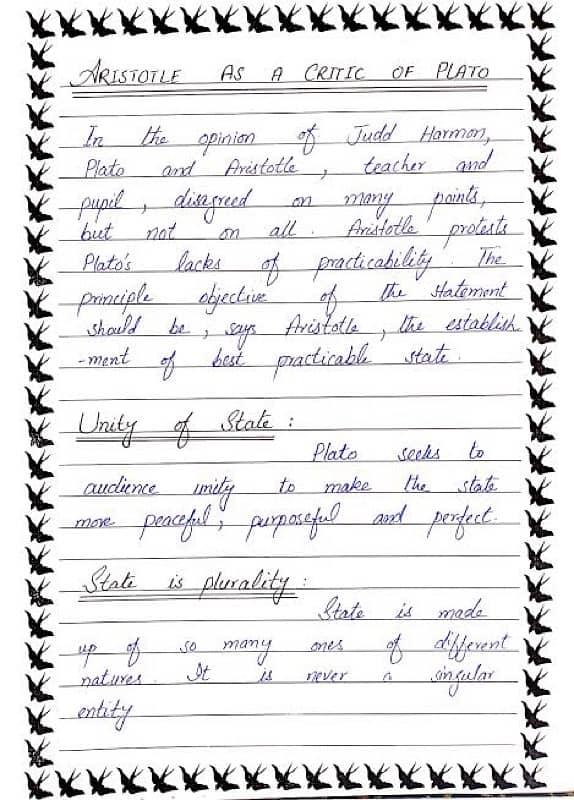 ARISTOTLE AS A CRITIC OF PLATO
In the opinion of Judd Harmon,
Plato and Aristotle, teacher and
pupil, disagreed on many points,
but not on all. Aristotle protests
Plato's lacks of practicability. The
principle objective of the statement
should be, says Aristotle, the establish
-ment of best practicable state.
Unity of State :
Plato seeks to
audience unity to make the state
more peaceful, purposeful and perfect.
State is plurality :
State is made
up of so many ones of different
natures. It is never a singular
entity